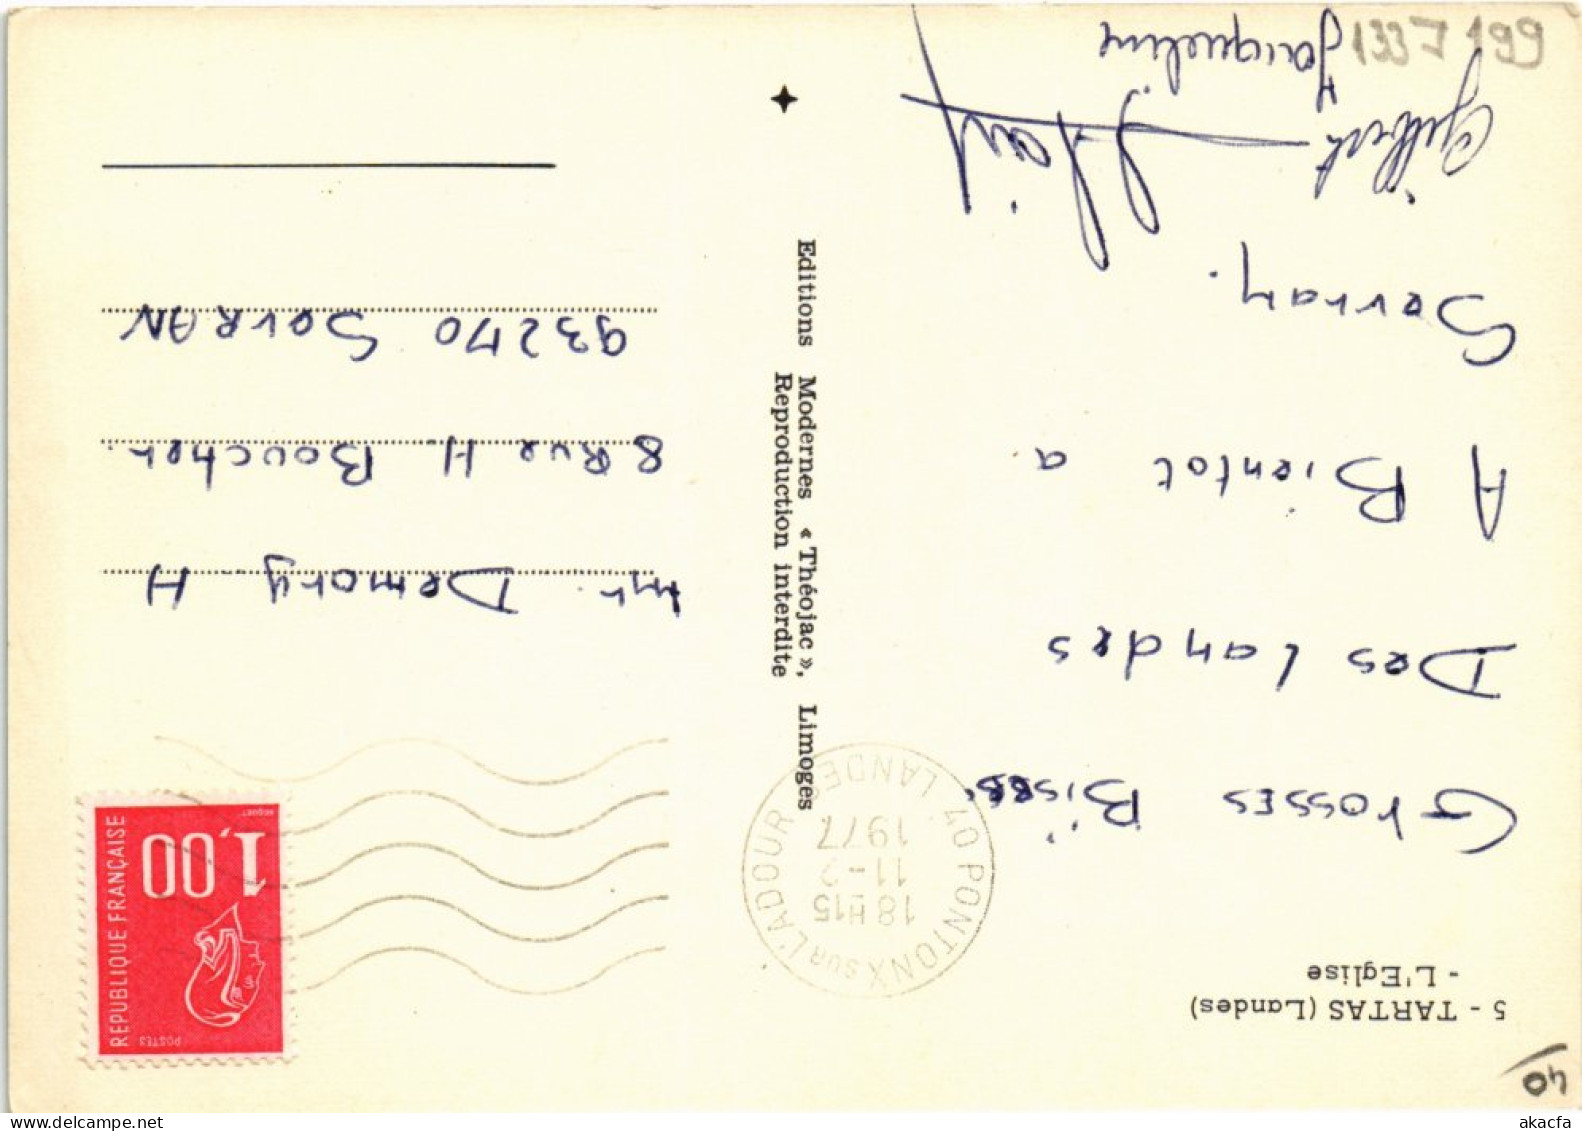 5 - TARTAS (Landes)
- L'Eglise
Grosses Bises
Des Landes
A Bientot a
Sevran.
Gilbert
Jacqueline
1337199
40
Editions Modernes « Théojac », Limoges
Reproduction interdite
40 PONTONX SUR L'ADOUR LANDES
18 H15
11-2
1977
REPUBLIQUE FRANÇAISE
1,00
POSTES
BEQUET
Mr. Demory H
8 Rue H. Boucher
93270 SevRAN
www.akacfa.com akacfa